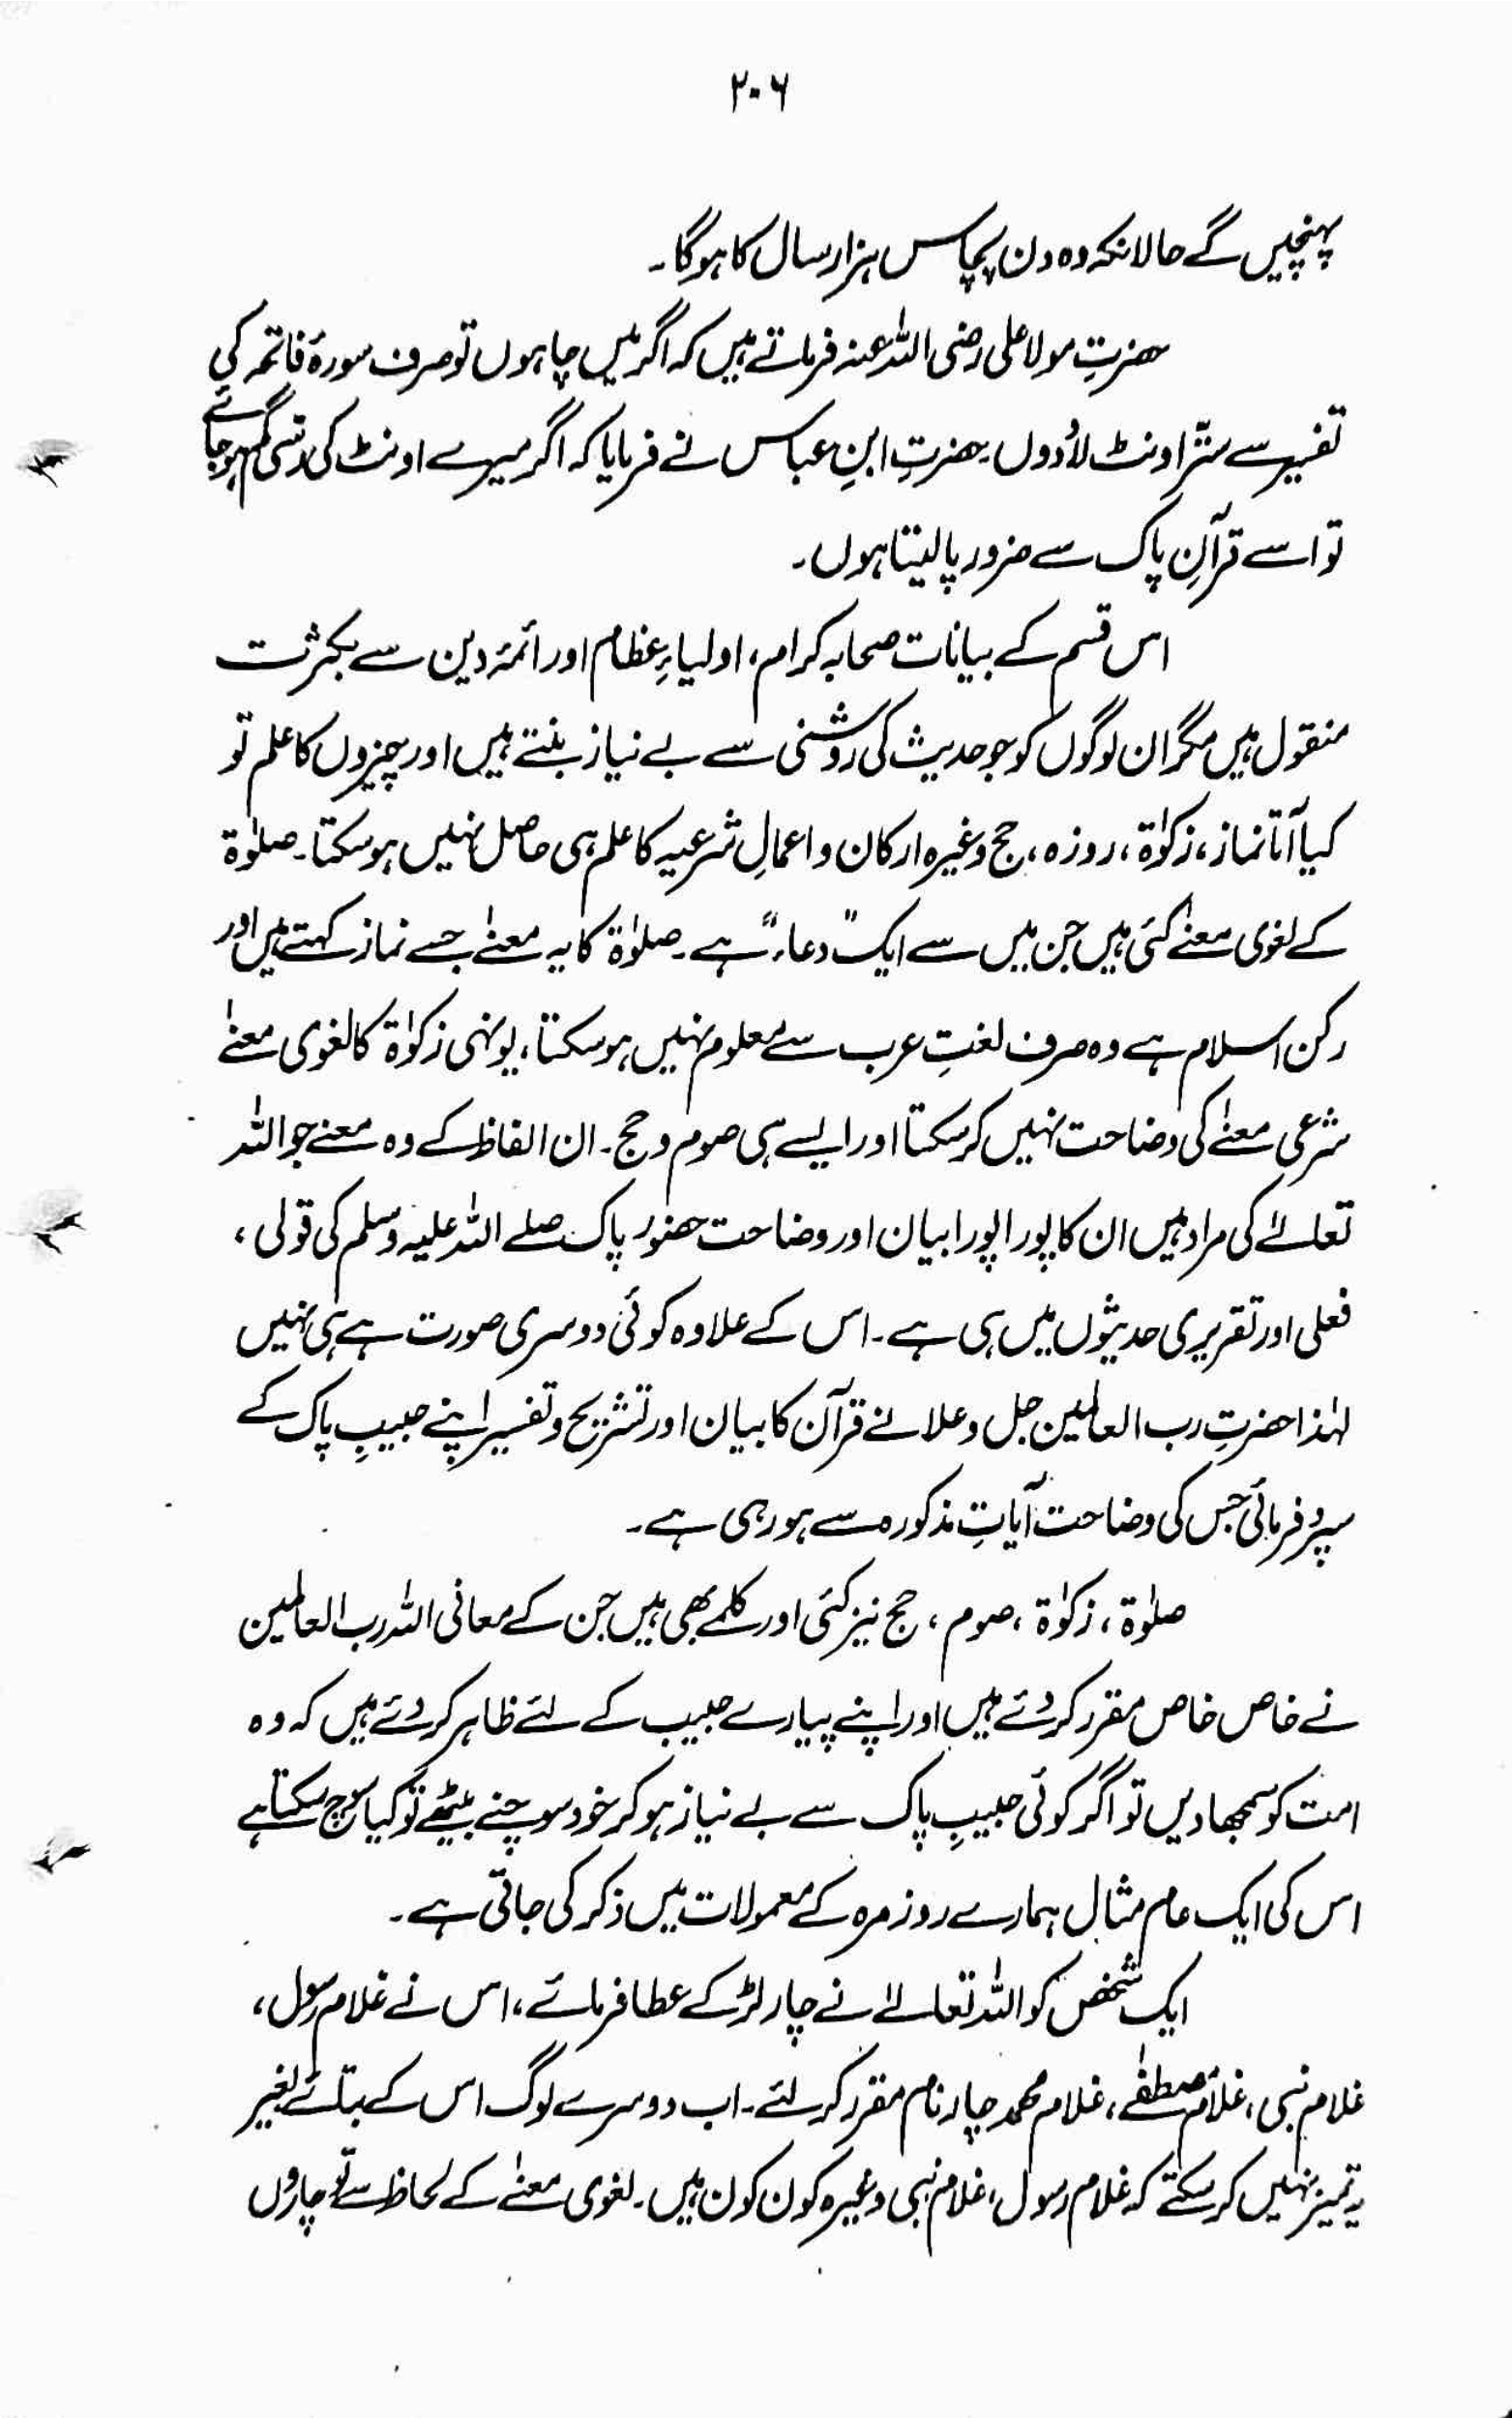 ۲۰۶
پہنچیں گے حالانکہ وہ دن پچاس ہزار سال کا ہوگا۔
حضرتِ مولا علی رضی اللہ عنہ فرماتے ہیں کہ اگر میں چاہوں تو صرف سورۂ فاتحہ کی
تفسیر سے ستّر اونٹ لادُدوں۔ حضرتِ ابنِ عباس نے فرمایا کہ اگر میرے اونٹ کی رسّی گم ہو جائے
تو اسے قرآنِ پاک سے ضرور پا لیتا ہوں۔
اس قسم کے بیانات صحابہ کرام، اولیاءِ عظام اور ائمۂ دین سے بکثرت
منقول ہیں مگر ان لوگوں کو جو حدیث کی روشنی سے بے نیاز بنتے ہیں اور چیزوں کا علم تو
کیا آتا نماز، زکوٰۃ، روزہ، حج وغیرہ ارکان و اعمالِ شرعیہ کا علم ہی حاصل نہیں ہو سکتا۔ صلوٰۃ
کے لغوی معنےٰ کئی ہیں جن میں سے ایک "دعاء" ہے۔ صلوٰۃ کا یہ معنےٰ جسے نماز کہتے ہیں اور
رکن اسلام ہے وہ صرف لغتِ عرب سے معلوم نہیں ہو سکتا، یونہی زکوٰۃ کا لغوی معنےٰ
شرعی معنےٰ کی وضاحت نہیں کر سکتا اور ایسے ہی صوم و حج۔ ان الفاظ کے وہ معنے جو اللہ
تعالےٰ کی مراد ہیں ان کا پورا پورا بیان اور وضاحت حضور پاک صلے اللہ علیہ وسلم کی قولی،
فعلی اور تقریری حدیثوں میں ہی ہے۔ اس کے علاوہ کوئی دوسری صورت ہے ہی نہیں
لہٰذا حضرتِ رب العالمین جل وعلا نے قرآن کا بیان اور تشریح و تفسیر اپنے حبیبِ پاک کے
سپرد فرمائی جس کی وضاحت آیاتِ مذکورہ سے ہو رہی ہے۔
صلوٰۃ، زکوٰۃ، صوم، حج نیز کئی اور کلمے بھی ہیں جن کے معانی اللہ رب العالمین
نے خاص خاص مقرر کر دئے ہیں اور اپنے پیارے حبیب کے لئے ظاہر کر دئے ہیں کہ وہ
امت کو سمجھا دیں تو اگر کوئی حبیبِ پاک سے بے نیاز ہو کر خود سوچنے بیٹھے تو کیا سوچ سکتا ہے
اس کی ایک عام مثال ہمارے روزمرہ کے معمولات میں ذکر کی جاتی ہے۔
ایک شخص کو اللہ تعالےٰ نے چار لڑکے عطا فرمائے، اس نے غلام رسول،
غلام نبی، غلام مصطفےٰ، غلام محمد چار نام مقرر کر لئے۔ اب دوسرے لوگ اس کے بتائے بغیر
یہ تمیز نہیں کر سکتے کہ غلام رسول، غلام نبی وغیرہ کون کون ہیں۔ لغوی معنےٰ کے لحاظ سے تو چاروں